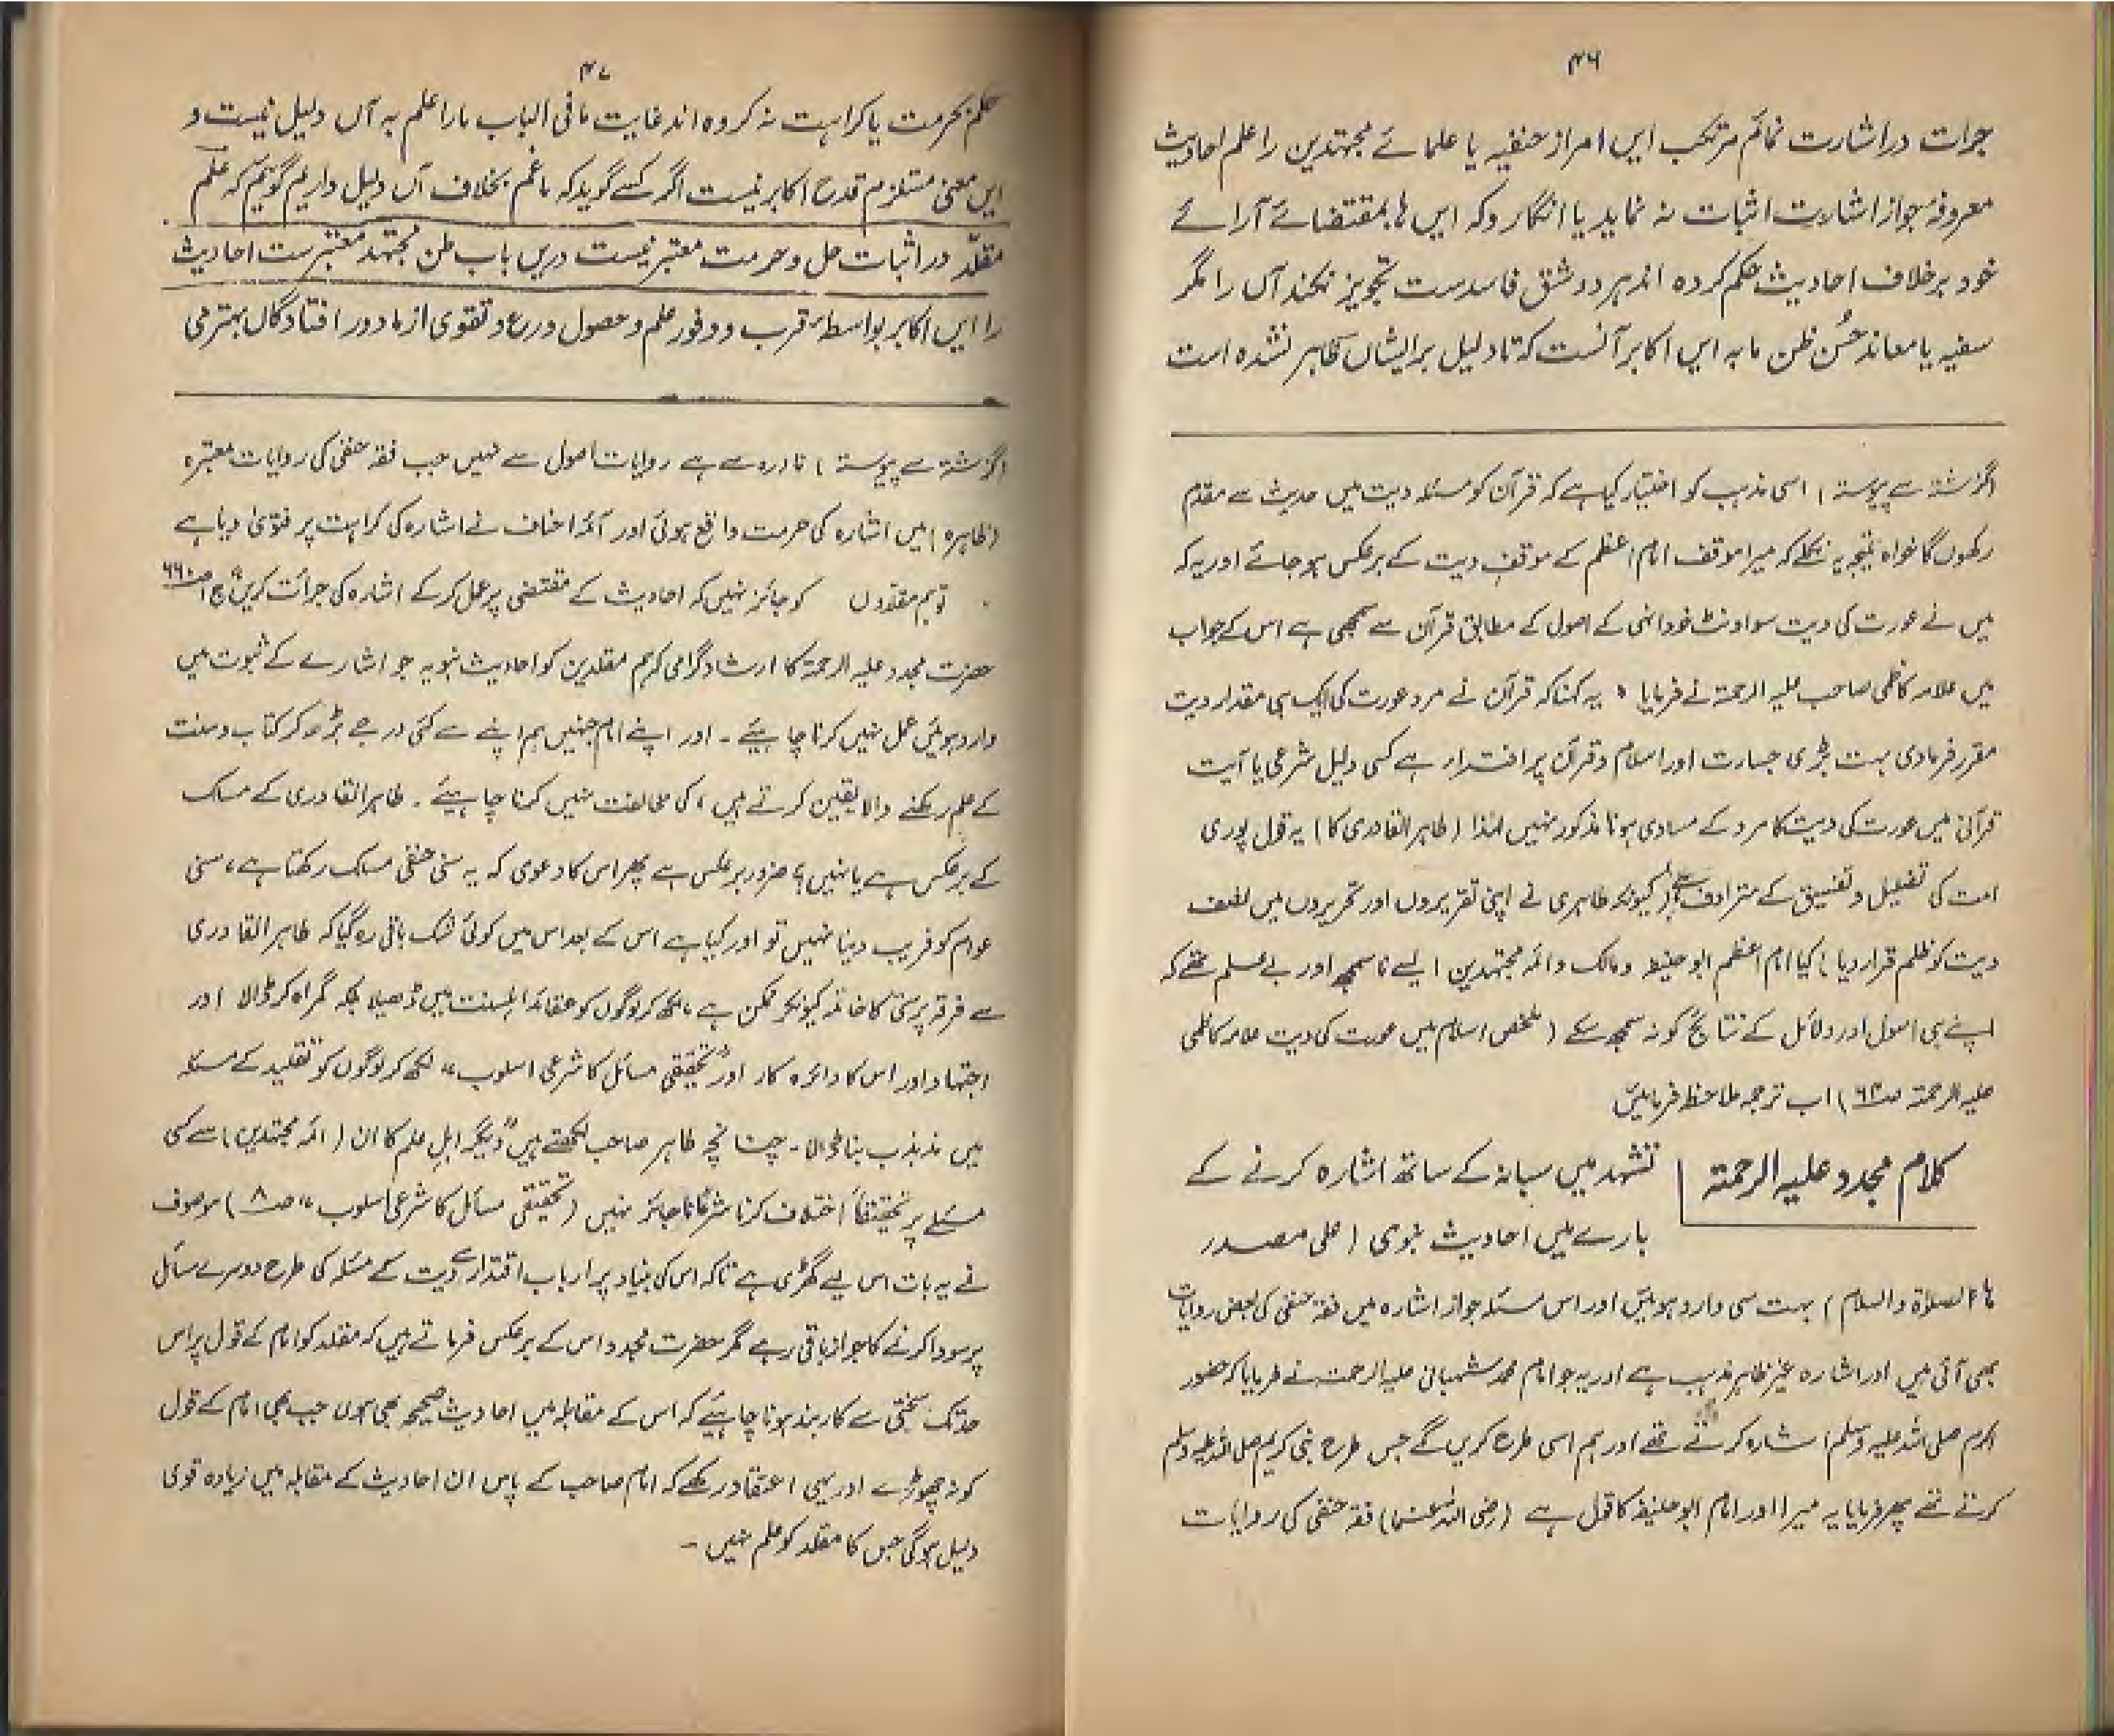 ۴۶
جرات در اشارت نمائم مرتکب ایں امر از حنفیہ یا علمائے مجتہدین را علم احادیث
معروفہ جواز اشارت اثبات نہ نماید یا انگارد کہ ایں ہا بمقتضائے آرائے
خود برخلاف احادیث حکم کردہ اند ہر دو شق فاسدست تجویز نکند آں را مگر
سفیہ یا معاند حُسن ظن ما بہ ایں اکابر آنست کہ تا دلیل بر ایشاں ظاہر نشدہ است
(گزشتہ سے پیوستہ) اسی مذہب کو اختیار کیا ہے کہ قرآن کو مسئلہ دیت میں حدیث سے مقدم
رکھوں گا خواہ نتیجہ یہ نکلے کہ میرا موقف امام اعظم کے موقف دیت کے برعکس ہو جائے اور یہ کہ
میں نے عورت کی دیت سو اونٹ خود انہی کے اصول کے مطابق قرآن سے سمجھی ہے اس کے جواب
میں علامہ کاظمی صاحب علیہ الرحمۃ نے فرمایا " یہ کہنا کہ قرآن نے مرد عورت کی ایک ہی مقدار دیت
مقرر فرما دی بہت بڑی جسارت اور اسلام و قرآن پر افتراء ہے کسی دلیل شرعی یا آیت
قرآنی میں عورت کی دیت کا مرد کے مساوی ہونا مذکور نہیں لہٰذا (طاہر القادری کا) یہ قول پوری
امت کی تضلیل و تفسیق کے مترادف ہے (کیونکہ طاہری نے اپنی تقریروں اور تحریروں میں نصف
دیت کو ظلم قرار دیا) کیا امام اعظم ابو حنیفہ و مالک و ائمہ مجتہدین ایسے ناسمجھ اور بے علم تھے کہ
اپنے ہی اصول اور دلائل کے نتائج کو نہ سمجھ سکے (ملخص اسلام میں عورت کی دیت علامہ کاظمی
علیہ الرحمۃ صـ۶۲) اب ترجمہ ملاحظہ فرمائیں
کلام مجدد علیہ الرحمۃ
تشہد میں سبابہ کے ساتھ اشارہ کرنے کے
بارے میں احادیث نبوی (علی مصدر
ہا الصلاۃ والسلام) بہت سی وارد ہوئیں اور اس مسئلہ جواز اشارہ میں فقہ حنفی کی بعض روایات
بھی آئی ہیں اور اشارہ غیر ظاہر مذہب ہے اور یہ جو امام محمد شیبانی علیہ الرحمۃ نے فرمایا کہ حضور
اکرم صلی اللہ علیہ وسلم اشارہ کرتے تھے اور ہم اسی طرح کریں گے جس طرح نبی کریم صلی اللہ علیہ وسلم
کرتے تھے پھر فرمایا یہ میرا اور امام ابو حنیفہ کا قول ہے (رضی اللہ عنہما) فقہ حنفی کی روایات
۴۷
حکم بحرمت یا کراہت نہ کردہ اند غایت ما فی الباب مارا علم بہ آں دلیل نیست و
ایں معنی مستلزم قدح اکابر نیست اگر کسے گوید کہ ما علم بخلاف آں دلیل داریم گوئیم کہ علم
مقلّد در اثبات حل و حرمت معتبر نیست دریں باب ظن مجتہد معتبرست احادیث
را ایں اکابر بواسطہ قرب و وفور علم و حصول ورع و تقوی از ما دور افتادگاں بہتر می
(گزشتہ سے پیوستہ) نادرہ سے ہے روایات اصول سے نہیں جب فقہ حنفی کی روایات معتبرہ
(ظاہرہ) میں اشارہ کی حرمت واقع ہوئی اور ائمہ احناف نے اشارہ کی کراہت پر فتویٰ دیا ہے
تو ہم مقلدوں کو جائز نہیں کہ احادیث کے مقتضی پر عمل کر کے اشارہ کی جرأت کریں
حضرت مجدد علیہ الرحمۃ کا ارشاد گرامی کہ ہم مقلدین کو احادیث نبویہ جو اشارے کے ثبوت میں
وارد ہوئیں عمل نہیں کرنا چاہیئے ۔ اور اپنے امام جنہیں ہم اپنے سے کئی درجے بڑھ کر کتاب و سنت
کے علم رکھنے والا یقین کرتے ہیں، کی مخالفت نہیں کرنا چاہیئے ۔ طاہر القادری کے مسلک
کے برعکس ہے یا نہیں؟ ضرور برعکس ہے پھر اس کا دعوی کہ یہ سنی حنفی مسلک رکھتا ہے، سنی
عوام کو فریب دینا نہیں تو اور کیا ہے اس کے بعد اس میں کوئی شک باقی رہ گیا کہ طاہر القادری
سے فرقہ پرستی کا خاتمہ کیونکر ممکن ہے، لکھ کر لوگوں کو عقائد اہلسنت میں ڈھیلا بلکہ گمراہ کر ڈالا اور
اجتہاد اور اس کا دائرہ کار اور "تحقیقی مسائل کا شرعی اسلوب" لکھ کر لوگوں کو تقلید کے مسئلہ
میں مذبذب بنا ڈالا ۔ چنانچہ طاہر صاحب لکھتے ہیں "دیگر اہل علم کا ان (ائمہ مجتہدین) سے کسی
مسئلے پر تحقیقاً اختلاف کرنا شرعاً ناجائز نہیں (تحقیقی مسائل کا شرعی اسلوب" صـ۸) موصوف
نے یہ بات اس لیے گھڑی ہے تاکہ اس کی بنیاد پر ارباب اقتدار سے دیت کے مسئلہ کی طرح دوسرے مسائل
پر سودا کرنے کا جواز باقی رہے مگر حضرت مجدد اس کے برعکس فرماتے ہیں کہ مقلد کو امام کے قول پر اس
حد تک سختی سے کاربند ہونا چاہیئے کہ اس کے مقابلہ میں احادیث صحیحہ بھی ہوں جب بھی امام کے قول
کو نہ چھوڑے اور یہی اعتقاد رکھے کہ امام صاحب کے پاس ان احادیث کے مقابلہ میں زیادہ قوی
دلیل ہو گی جس کا مقلد کو علم نہیں ۔